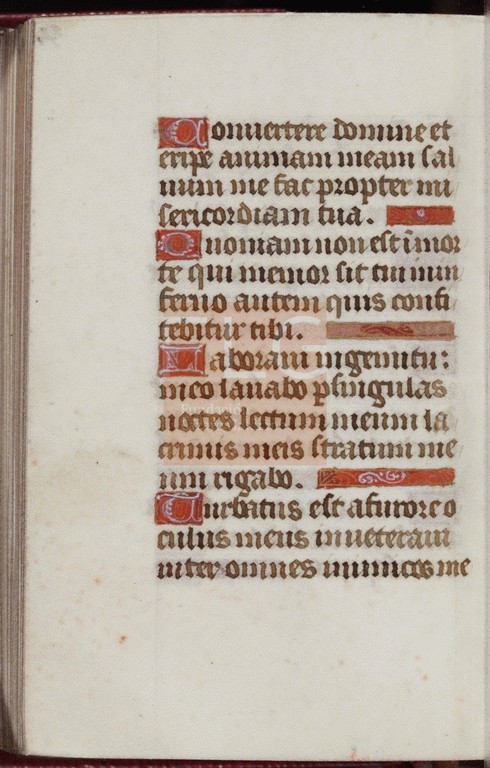 Convertere domine et
eripe animam meam sal
uum me fac propter mi
sericordiam tua.
Quoniam non est ī mor
te qui memor sit tui in in
ferno autem quis confi
tebitur tibi.
Laboraui in gemitu :
meo lauabo ꝑ singulas
noctes lectum meum la
crimis meis stratum me
um rigabo.
Turbatus est a furore o
culus meus inueteraui
inter omnes inimicos me